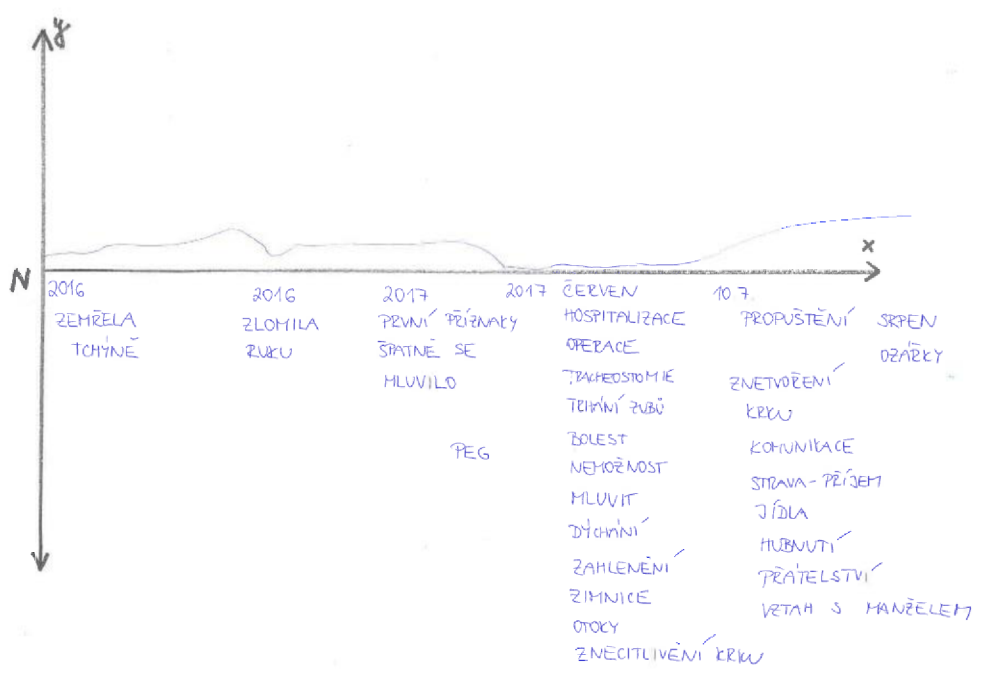 y
x
N
2016
ZEMŘELA
TCHÝNĚ
2016
ZLOMILA
RUKU
2017
PRVNÍ PŘÍZNAKY
ŠPATNĚ SE
MLUVILO
PEG
2017
ČERVEN
HOSPITALIZACE
OPERACE
TRACHEOSTOMIE
TRHÁNÍ ZUBŮ
BOLEST
NEMOŽNOST
MLUVIT
DÝCHÁNÍ
ZAHLENĚNÍ
ZIMNICE
OTOKY
ZNECITLIVĚNÍ KRKU
10.7.
PROPUŠTĚNÍ
ZNETVOŘENÍ
KRKU
KOMUNIKACE
STRAVA-PŘÍJEM
JÍDLA
HUBNUTÍ
PŘÁTELSTVÍ
VZTAH S MANŽELEM
SRPEN
OZÁŘKY